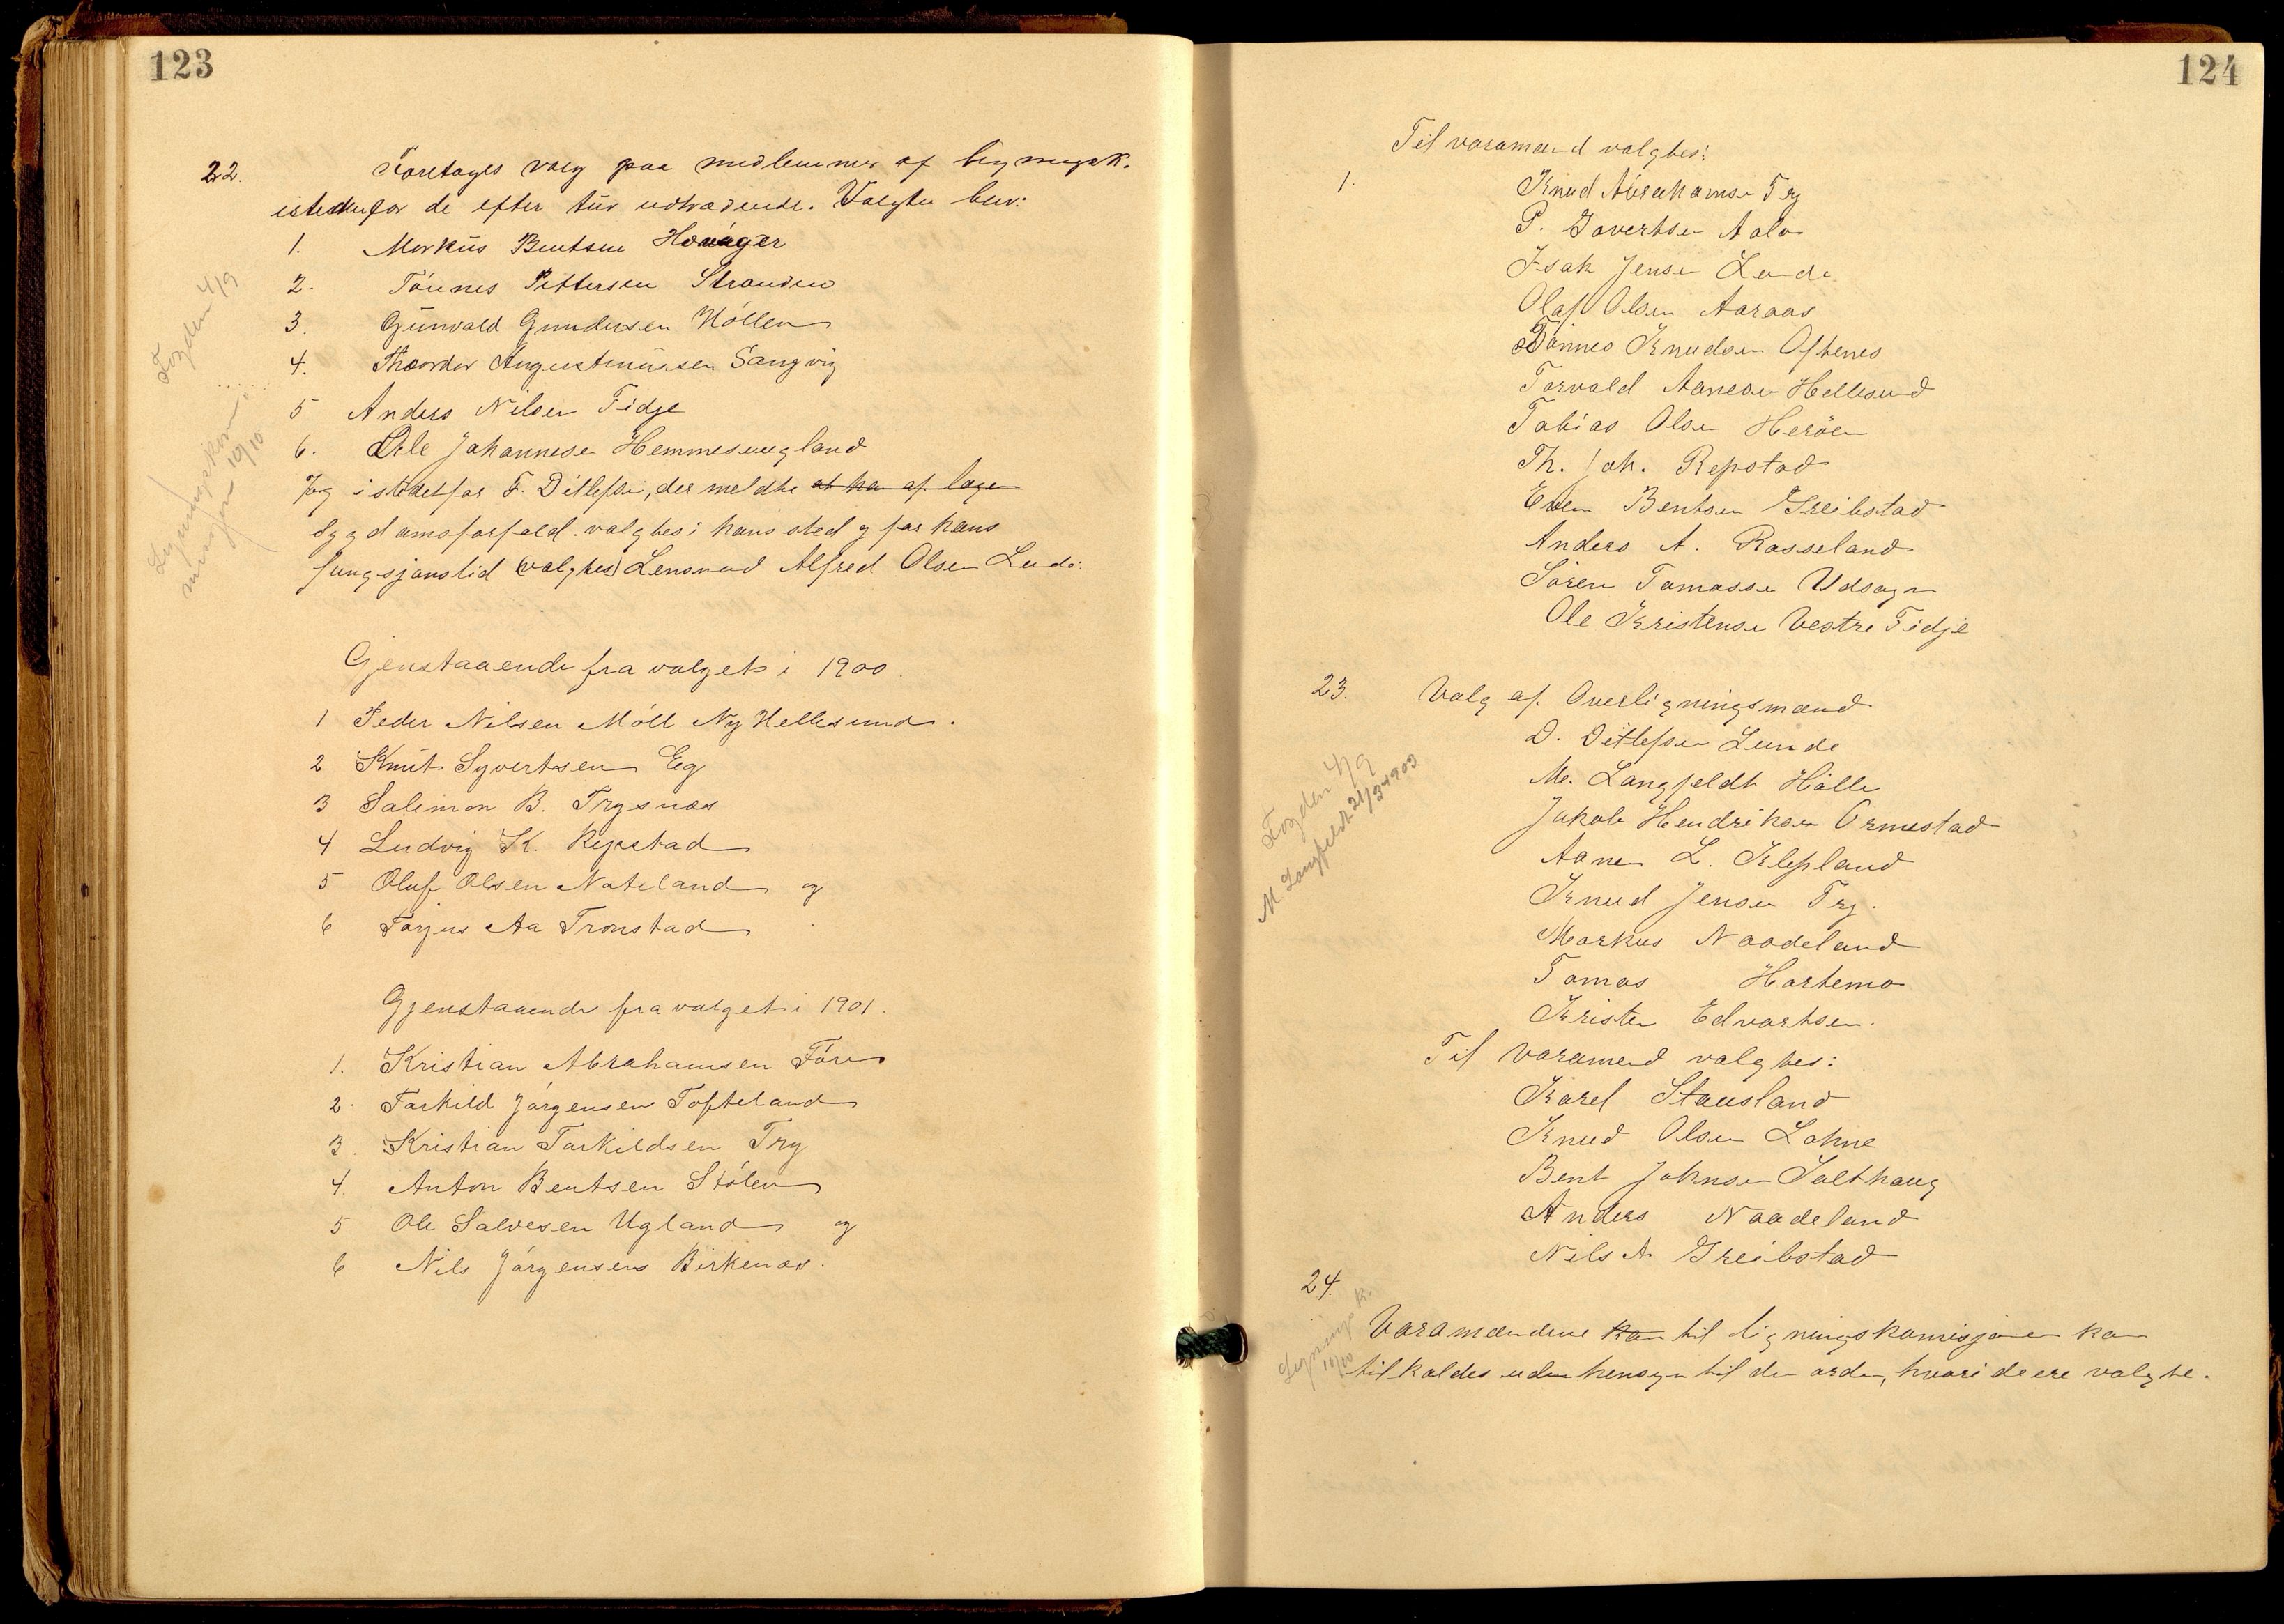 123
22. Foretages valg paa medlemmer af ligningsk.
istedenfor de efter tür udtrædende. Valgte blev:
1. Markus Bentsen Hovåger
2. Tónnes Pettersen Stranden
3. Gunvald Gundersen Hóllen
4. Theordor Augustinussen Langvig
5 Anders Nilsen Tidje
6. Atle Johannesen Hemmesugland
Og istedetfor F. Ditlefsen, der meldte at ha af lage
sygdomsforfald valgtes i hans sted og for hans
fungsjonstid (valgtes) Lensmd Alfred Olsen Lunde.
Fogden 4/9
Ligningskom
misjon 10/10
Gjenstaaende fra valget i 1900.
1 Peder Nilsen Móll Ny Hellesund.
2 Knut Syvertsen Eg
3 Salemon B. Trysnæs
4 Ludvig K. Repstad
5 Oluf Olsen Nateland og
6 Tarjus Aa Tronstad
Gjenstaaende fra valget i 1901.
1. Kristian Abrahamsen Fóre
2. Tarkild Jórgensen Tofteland
3. Kristian Tarkildsen Try
4. Anton Bentsen Stólen
5 Ole Salvesen Ugland og
6 Nils Jórgensen Birkenæs.
124
Til varamænd valgtes:
1. Knud Abrahamsen Try
P. Govertsen Aalo
Isak Jensen Lunde
Olaf Olsen Aaraas
Tónnes Knudsen Oftenes
Torvald Aanesen Hellesund
Tobias Olsen Heröen
Th. Joh. Repstad
Even Bentsen Greibstad
Anders A. Rosseland
Sören Tomassen Udsogn
Ole Kristensen Vestre Tidje
23. Valg af Overligningsmænd
D. Ditlefsen Lunde
M. Langfeldt Hólle
Jakob Hendriksen Ormestad
Aanen L. Klepland
Knud Jensen Try.
Markus Naadeland
Tomas Hortemo
Kristen Edvartsen.
Fogden 4/9
M Langfeldt 21/3 1903
Til varamænd valgtes:
Karel Stausland
Knud Olsen Lohne
Bent Johnsen Salthaug
Anders Naadeland
Nils A Greibstad
24.
Varamændene kan til ligningskomisjonen kan
tilkaldes uden hensyn til den orden, hvori de ere valgte.
Lignings k.
10/10